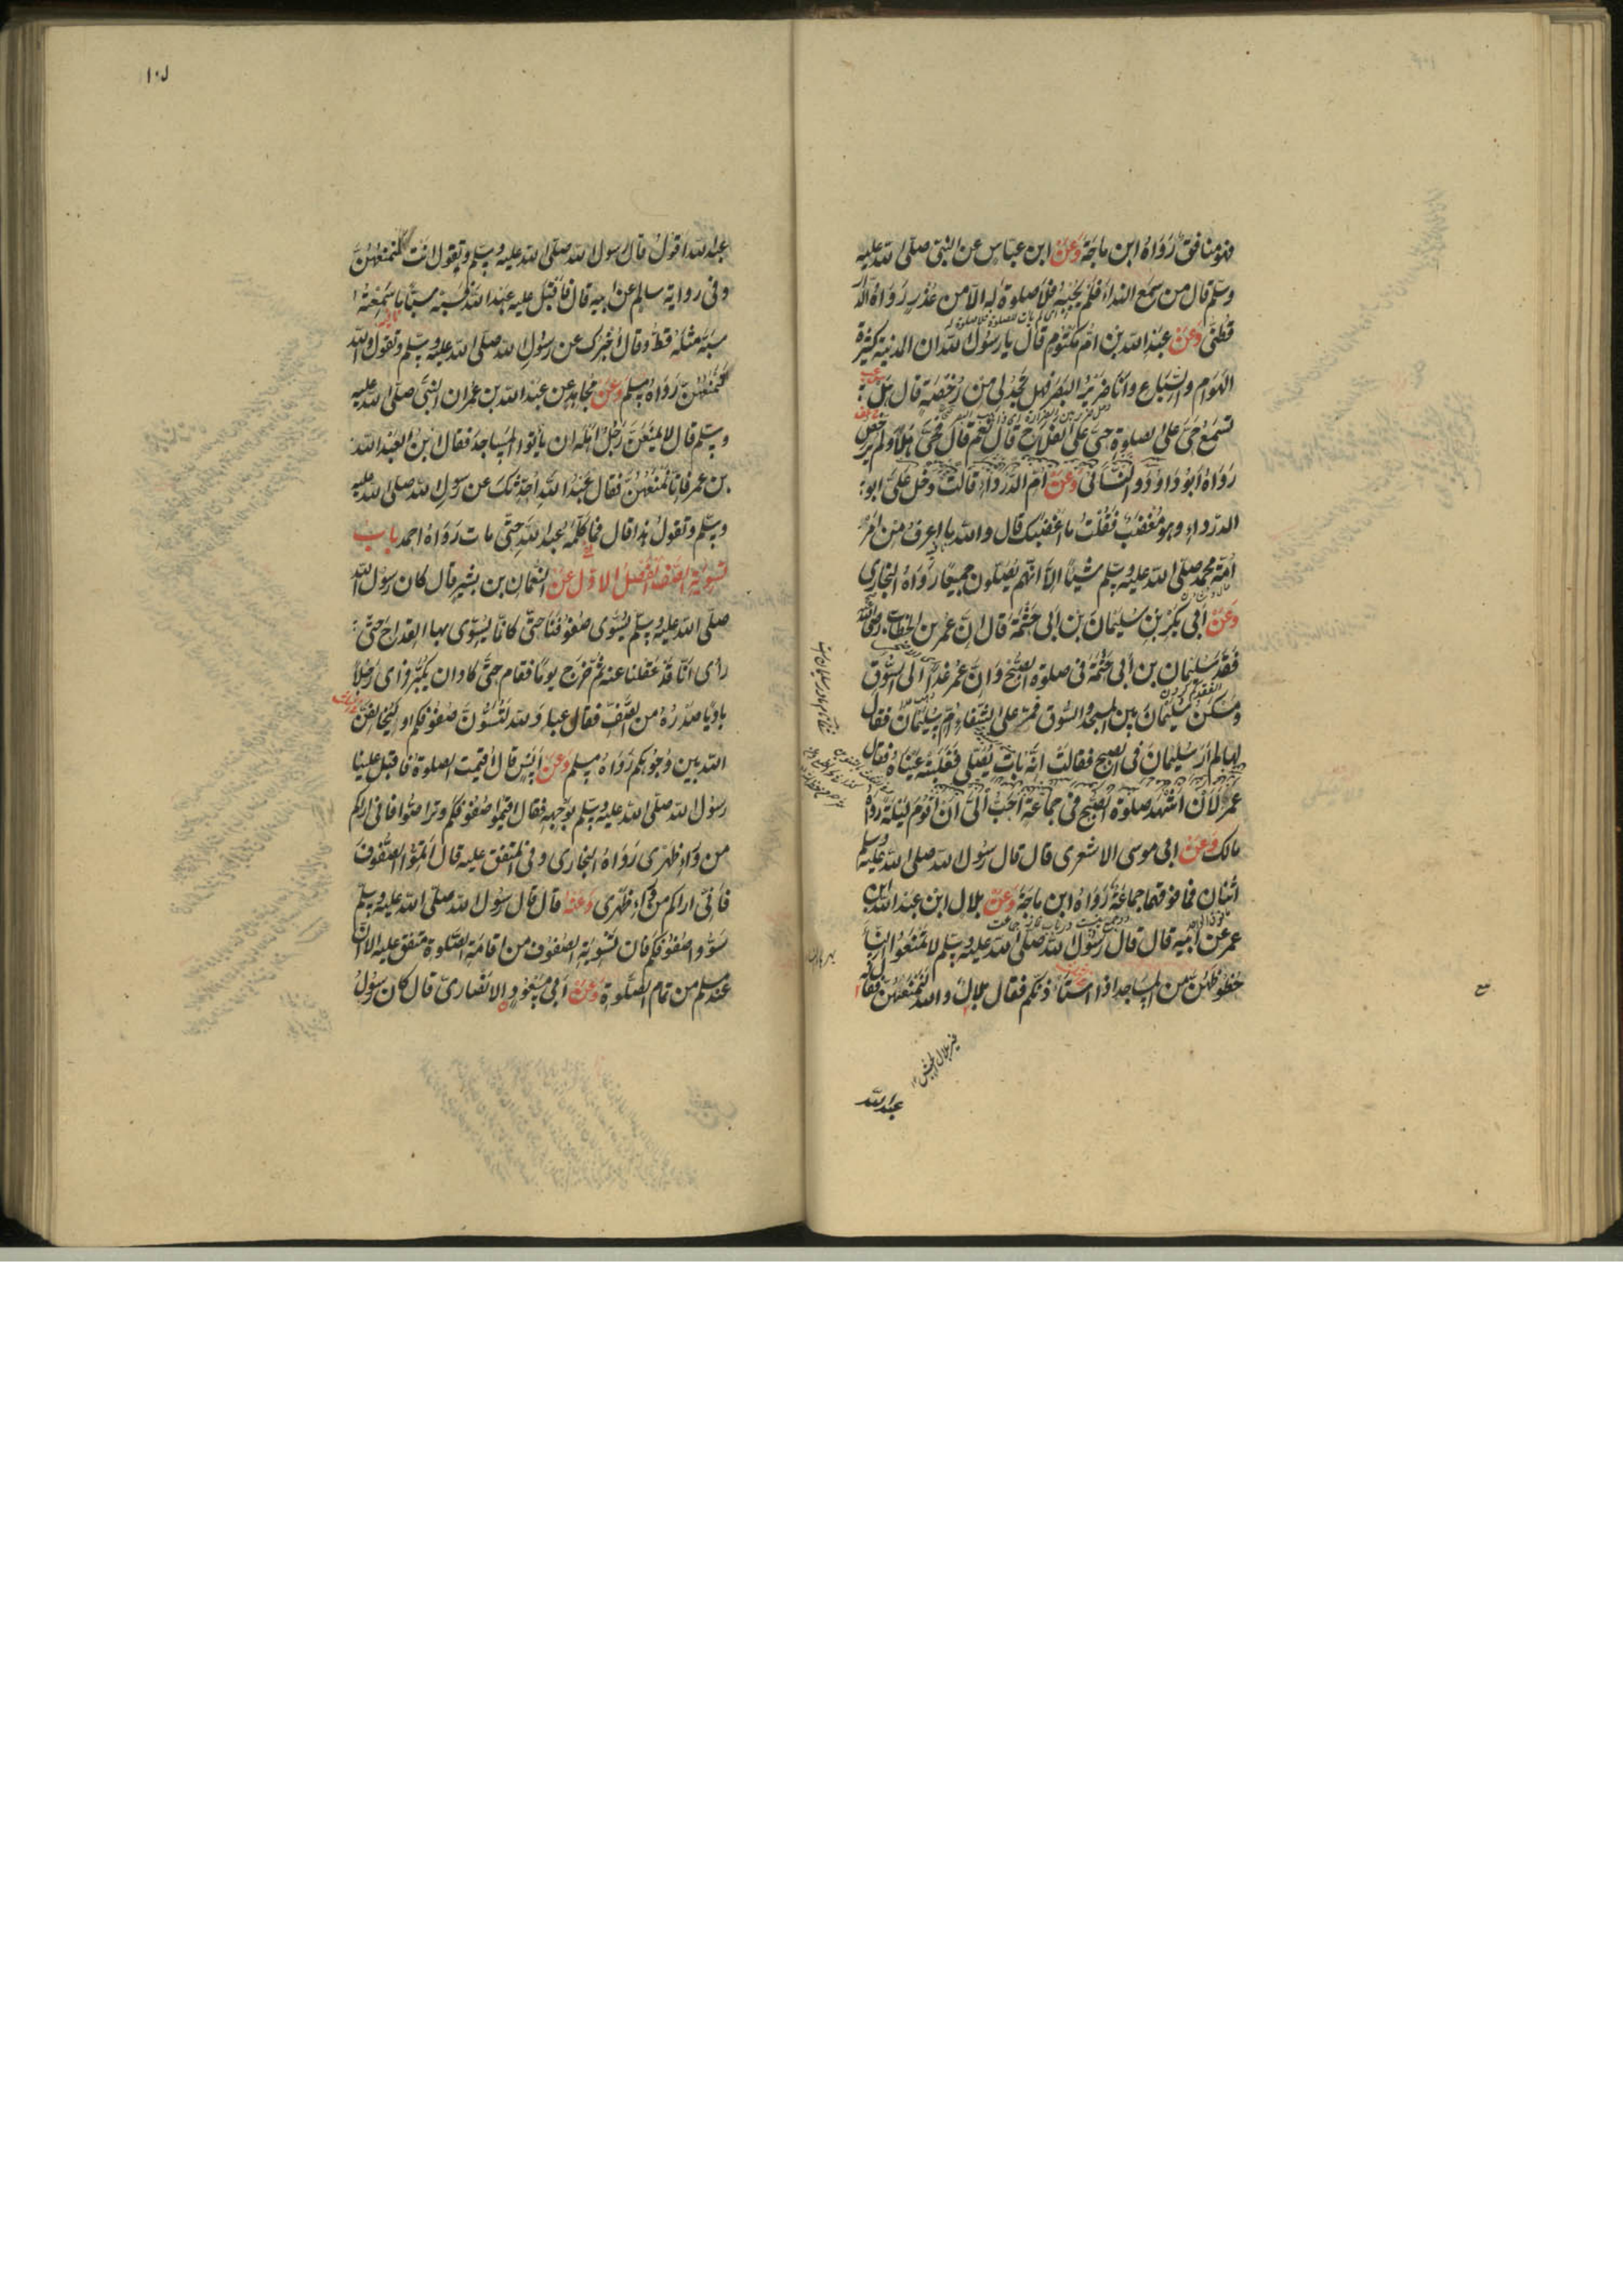 فهو منافق رواه ابن ماجة وعن ابن عباس عن النبي صلى الله عليه
وسلم قال من سمع النداء فلم يجبه فلا صلوة له الا من عذر رواه الدار
قطني وعن عبد الله بن ام مكتوم قال يا رسول الله ان المدينة كثيرة
الهوام والسباع وانا ضرير البصر فهل تجد لي من رخصة قال هل
تسمع حي على الصلوة حي على الفلاح قال نعم قال فحي هلا ولم يرخص
رواه أبو داود والنسائي وعن ام الدرداء قالت دخل علي ابو
الدرداء وهو مغضب فقلت ما اغضبك قال والله ما اعرف من امر
امة محمد صلى الله عليه وسلم شيئا الا انهم يصلون جميعا رواه البخاري
وعن أبي بكر بن سليمان بن ابي حثمة قال ان عمر بن الخطاب رضي الله
فقد سليمان بن أبي حثمة في صلوة الصبح وان عمر غدا الى السوق
ومسكن سليمان بين المسجد والسوق فمر على الشفاء ام سليمان فقال
لها لم ار سليمان في الصبح فقالت انه بات يصلي فغلبته عيناه فقال
عمر لان اشهد صلوة الصبح في جماعة احب الي ان اقوم ليلة رواه
مالك وعن ابي موسى الاشعري قال قال رسول الله صلى الله عليه وسلم
اثنان فما فوقهما جماعة رواه ابن ماجة وعن بلال ابن عبد الله بن
عمر عن ابيه قال قال رسول الله صلى الله عليه وسلم لا تمنعوا النساء
حظوظهن من المساجد اذا استأذنكم فقال بلال والله لنمنعهن فقال له
عبد الله
١٠١
عبد الله اقول قال رسول الله صلى الله عليه وسلم وتقول انت لنمنعهن
وفي رواية سالم عن ابيه قال فأقبل عليه عبد الله فسبه سبا ما سمعته
سبه مثله قط وقال أخبرك عن رسول الله صلى الله عليه وسلم وتقول والله
لنمنعهن رواه مسلم وعن مجاهد عن عبد الله بن عمر ان النبي صلى الله عليه
وسلم قال لا يمنعن رجل اهله ان يأتوا المساجد فقال ابن لعبد الله
بن عمر فانا نمنعهن فقال عبد الله احدثك عن رسول الله صلى الله عليه
وسلم وتقول هذا قال فما كلمه عبد الله حتى مات رواه احمد باب
تسوية الصف الفصل الاول عن النعمان بن بشير قال كان رسول الله
صلى الله عليه وسلم يسوي صفوفنا حتى كانما يسوي بها القداح حتى
رأى انا قد عقلنا عنه ثم خرج يوما فقام حتى كاد ان يكبر فراى رجلا
باديا صدره من الصف فقال عباد الله لتسون صفوفكم او ليخالفن
الله بين وجوهكم رواه مسلم وعن انس قال اقيمت الصلوة فاقبل علينا
رسول الله صلى الله عليه وسلم بوجهه فقال اقيموا صفوفكم وتراصوا فاني اراكم
من وراء ظهري رواه البخاري وفي المتفق عليه قال اتموا الصفوف
فاني اراكم من وراء ظهري وعنه قال قال رسول الله صلى الله عليه وسلم
سووا صفوفكم فان تسوية الصفوف من اقامة الصلوة متفق عليه الا ان
عند مسلم من تمام الصلوة وعن أبي مسعود الانصاري قال كان رسول